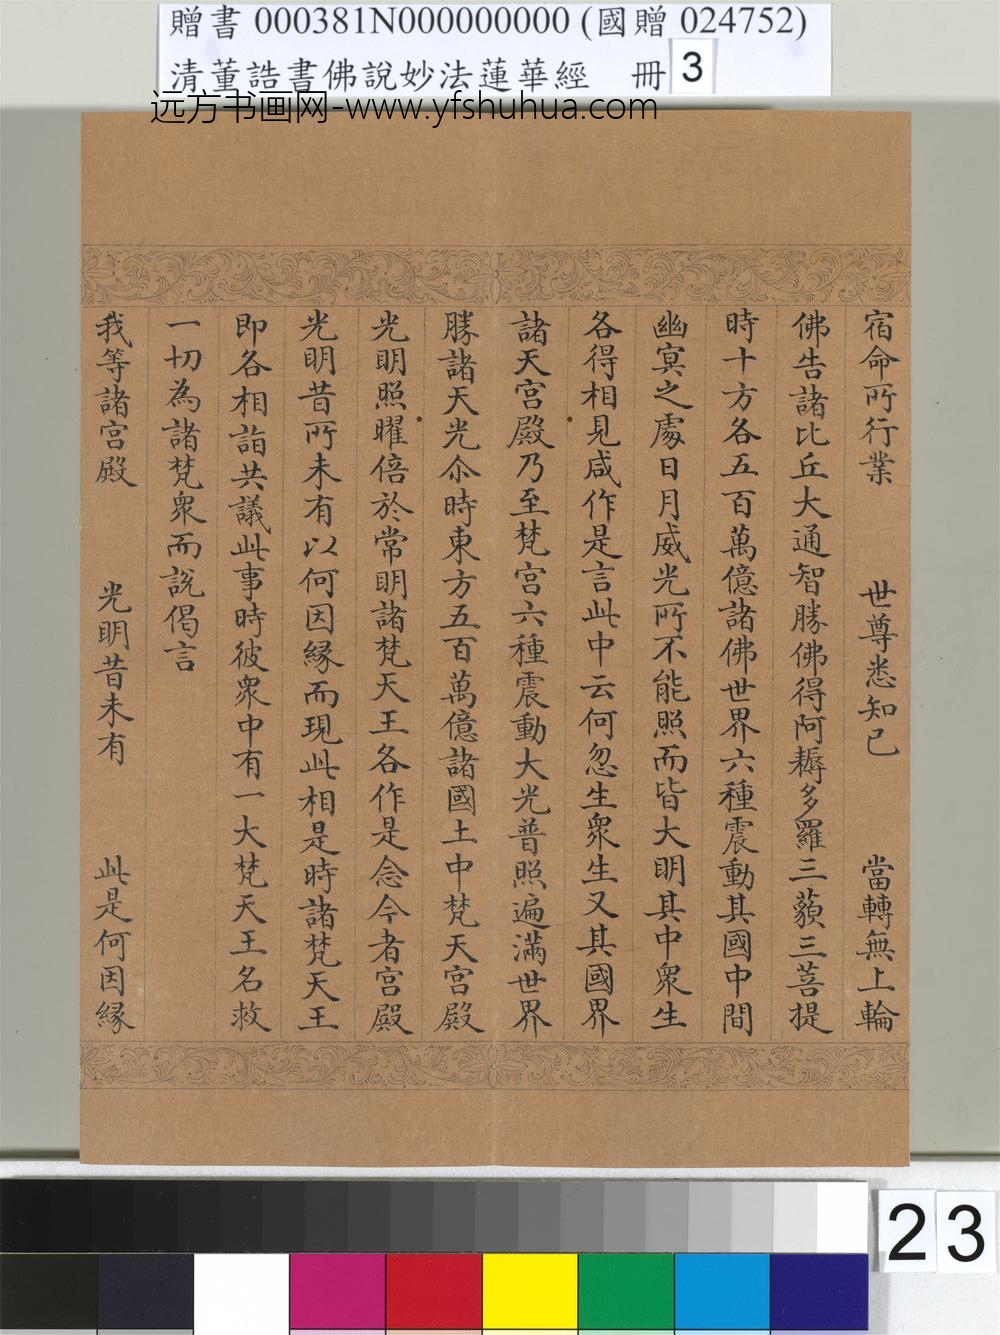 贈書 000381N000000000 (國贈 024752)
清董誥書佛說妙法蓮華經 冊 3
远方书画网-www.yfshuhua.com
宿命所行業 世尊悉知已 當轉無上輪
佛告諸比丘大通智勝佛得阿耨多羅三藐三菩提
時十方各五百萬億諸佛世界六種震動其國中間
幽冥之處日月威光所不能照而皆大明其中眾生
各得相見咸作是言此中云何忽生眾生又其國界
諸天宮殿乃至梵宮六種震動大光普照遍滿世界
勝諸天光尒時東方五百萬億諸國土中梵天宮殿
光明照曜倍於常明諸梵天王各作是念今者宮殿
光明昔所未有以何因緣而現此相是時諸梵天王
即各相詣共議此事時彼眾中有一大梵天王名救
一切為諸梵眾而說偈言
我等諸宮殿 光明昔未有 此是何因緣
23